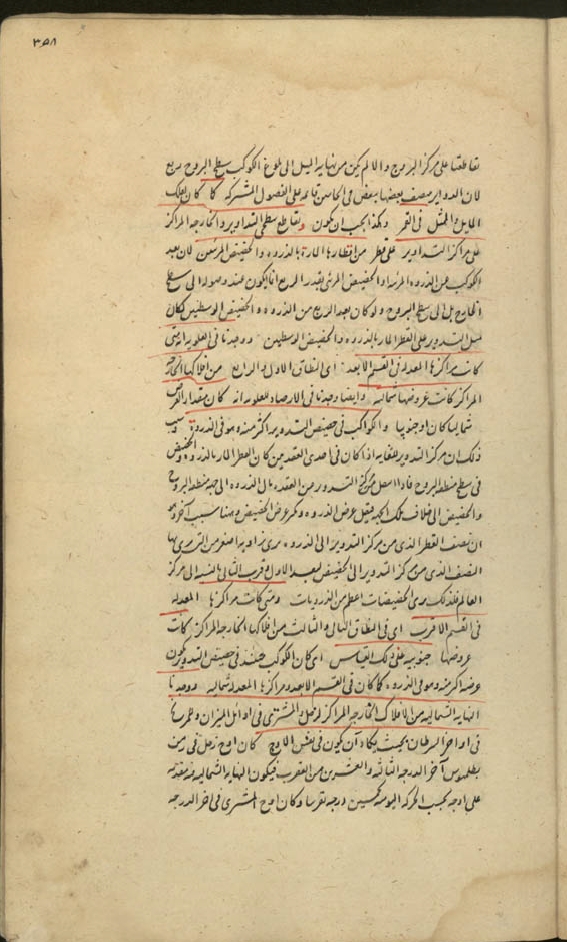 ٣٥٨
تقاطعتا على مركز البروج والا لم يكن من نهاية الميل الى بلوغ الكوكب سطح البروج ربع
لان الدواير منصف بعضها بعض فى الجانبين قايمة على الفصول المشتركة كما كان لفلك
المايل والممثل فى القمر وهكذا يجب ان يكون وتقاطع سطحى التداوير والخارجة المراكز
على مراكز التداوير على قطر من اقطارها المارة بالذروة والحضيض المرئيين لان بعد
الكوكب عن الذروة المرئية او الحضيض المرئى بقدر الربع انما يكون عند وصوله الى سطح
الخارج بل الى سطح البروج ولو كان بعد الربع من الذروة والحضيض الوسطيين لكان
ميل التدوير على القطر المار بالذروة والحضيض الوسطيين ووجدنا فى العلوية انه متى
كانت مراكزها المعدلة فى القسم الابعد اى النطاق الاول والرابع من افلاكها الخارجة
المراكز كانت عروضها شمالية وايضا وجدنا فى الارصاد للعلوية انه كان مقدار العرض
شماليا كان او جنوبيا والكواكب فى حضيض التدوير اكثر منه وهو فى الذروة وسبب
ذلك ان مركز التدوير للعلوية اذا كان فى احدى العقدتين كان القطر المار بالذروة والحضيض
فى سطح منطقة البروج فاذا انتقل مركز التدوير من العقدة مال الذروة الى جهة منطقة البروج
والحضيض الى خلاف تلك الجهة فيقل عرض الذروة ويكثر عرض الحضيض وهنا سبب آخر وهو
ان نصف القطر الذى من مركز التدوير الى الذروة يرى زاوية اصغر من التى يرى بها
النصف الذى من مركز التدوير الى الحضيض لبعد الاول وقرب الثانى بالنسبة الى مركز
العالم فلذلك يرى الحضيضيات اعظم من الذرويات ومتى كانت مراكزها المعدلة
فى القسم الاقرب اى فى النطاق الثانى والثالث من افلاكها الخارجة المراكز كانت
عروضها جنوبية على ذلك القياس اى كان الكوكب حينئذ فى حضيض التدوير يكون
عرضه اكثر منه وهو فى الذروة كما كان فى القسم الابعد ومراكزها المعدلة شمالية ووجدنا
النهاية الشمالية من الافلاك الخارجة المراكز لزحل والمشترى فى اوائل الميزان وللمريخ
فى اواخر السرطان بحيث يكاد ان يكون فى نفس الاوج كان اوج زحل فى زمن
بطلميوس آخر الدرجة الثانية والعشرين من العقرب فيكون النهاية الشمالية منه متقدمة
على اوجه بحسب الحركة اليومية خمسين درجة تقريبا وكان اوج المشترى فى اخر الدرجة